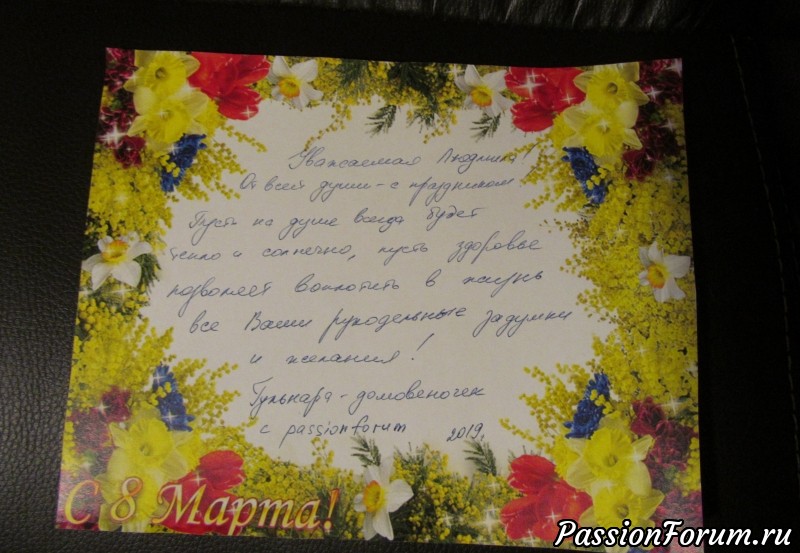 Уважаемая Людмила!
От всей души - с праздником!
Пусть на душе всегда будет
тепло и солнечно, пусть здоровье
позволяет воплотить в жизнь
все Ваши рукодельные задумки
и желания!
Гульнара - домовеночек
с passionforum 2019г.
С 8 Марта!
PassionForum.ru